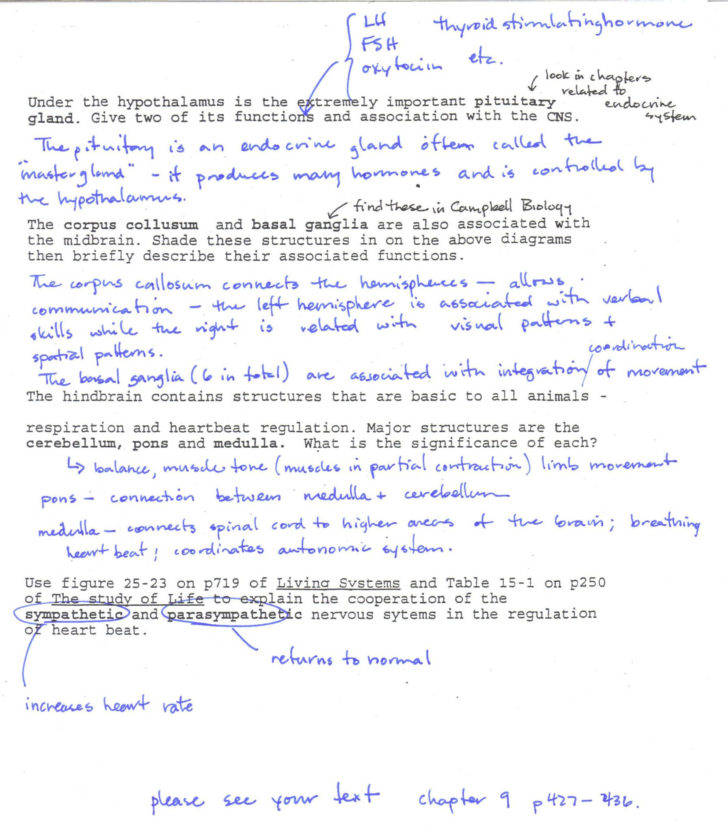 LH thyroid stimulating hormone
FSH
oxytocin etc.
look in chapters
related to
endocrine
system
Under the hypothalamus is the extremely important pituitary
gland. Give two of its functions and association with the CNS.
The pituitary is an endocrine gland often called the
"master gland" - it produces many hormones and is controlled by
the hypothalamus.
find these in Campbell Biology
The corpus collusum and basal ganglia are also associated with
the midbrain. Shade these structures in on the above diagrams
then briefly describe their associated functions.
The corpus callosum connects the hemispheres - allows
communication - the left hemisphere is associated with verbal
skills while the right is related with visual patterns +
spatial patterns.
coordination
The basal ganglia (6 in total) are associated with integration/of movement
The hindbrain contains structures that are basic to all animals -
respiration and heartbeat regulation. Major structures are the
cerebellum, pons and medulla. What is the significance of each?
↳ balance, muscle tone (muscles in partial contraction) limb movement
pons - connection between medulla + cerebellum
medulla - connects spinal cord to higher areas of the brain; breathing
heart beat; coordinates autonomic system.
Use figure 25-23 on p719 of Living Systems and Table 15-1 on p250
of The study of Life to explain the cooperation of the
sympathetic and parasympathetic nervous sytems in the regulation
of heart beat.
returns to normal
increases heart rate
please see your text chapter 9 p427-436.